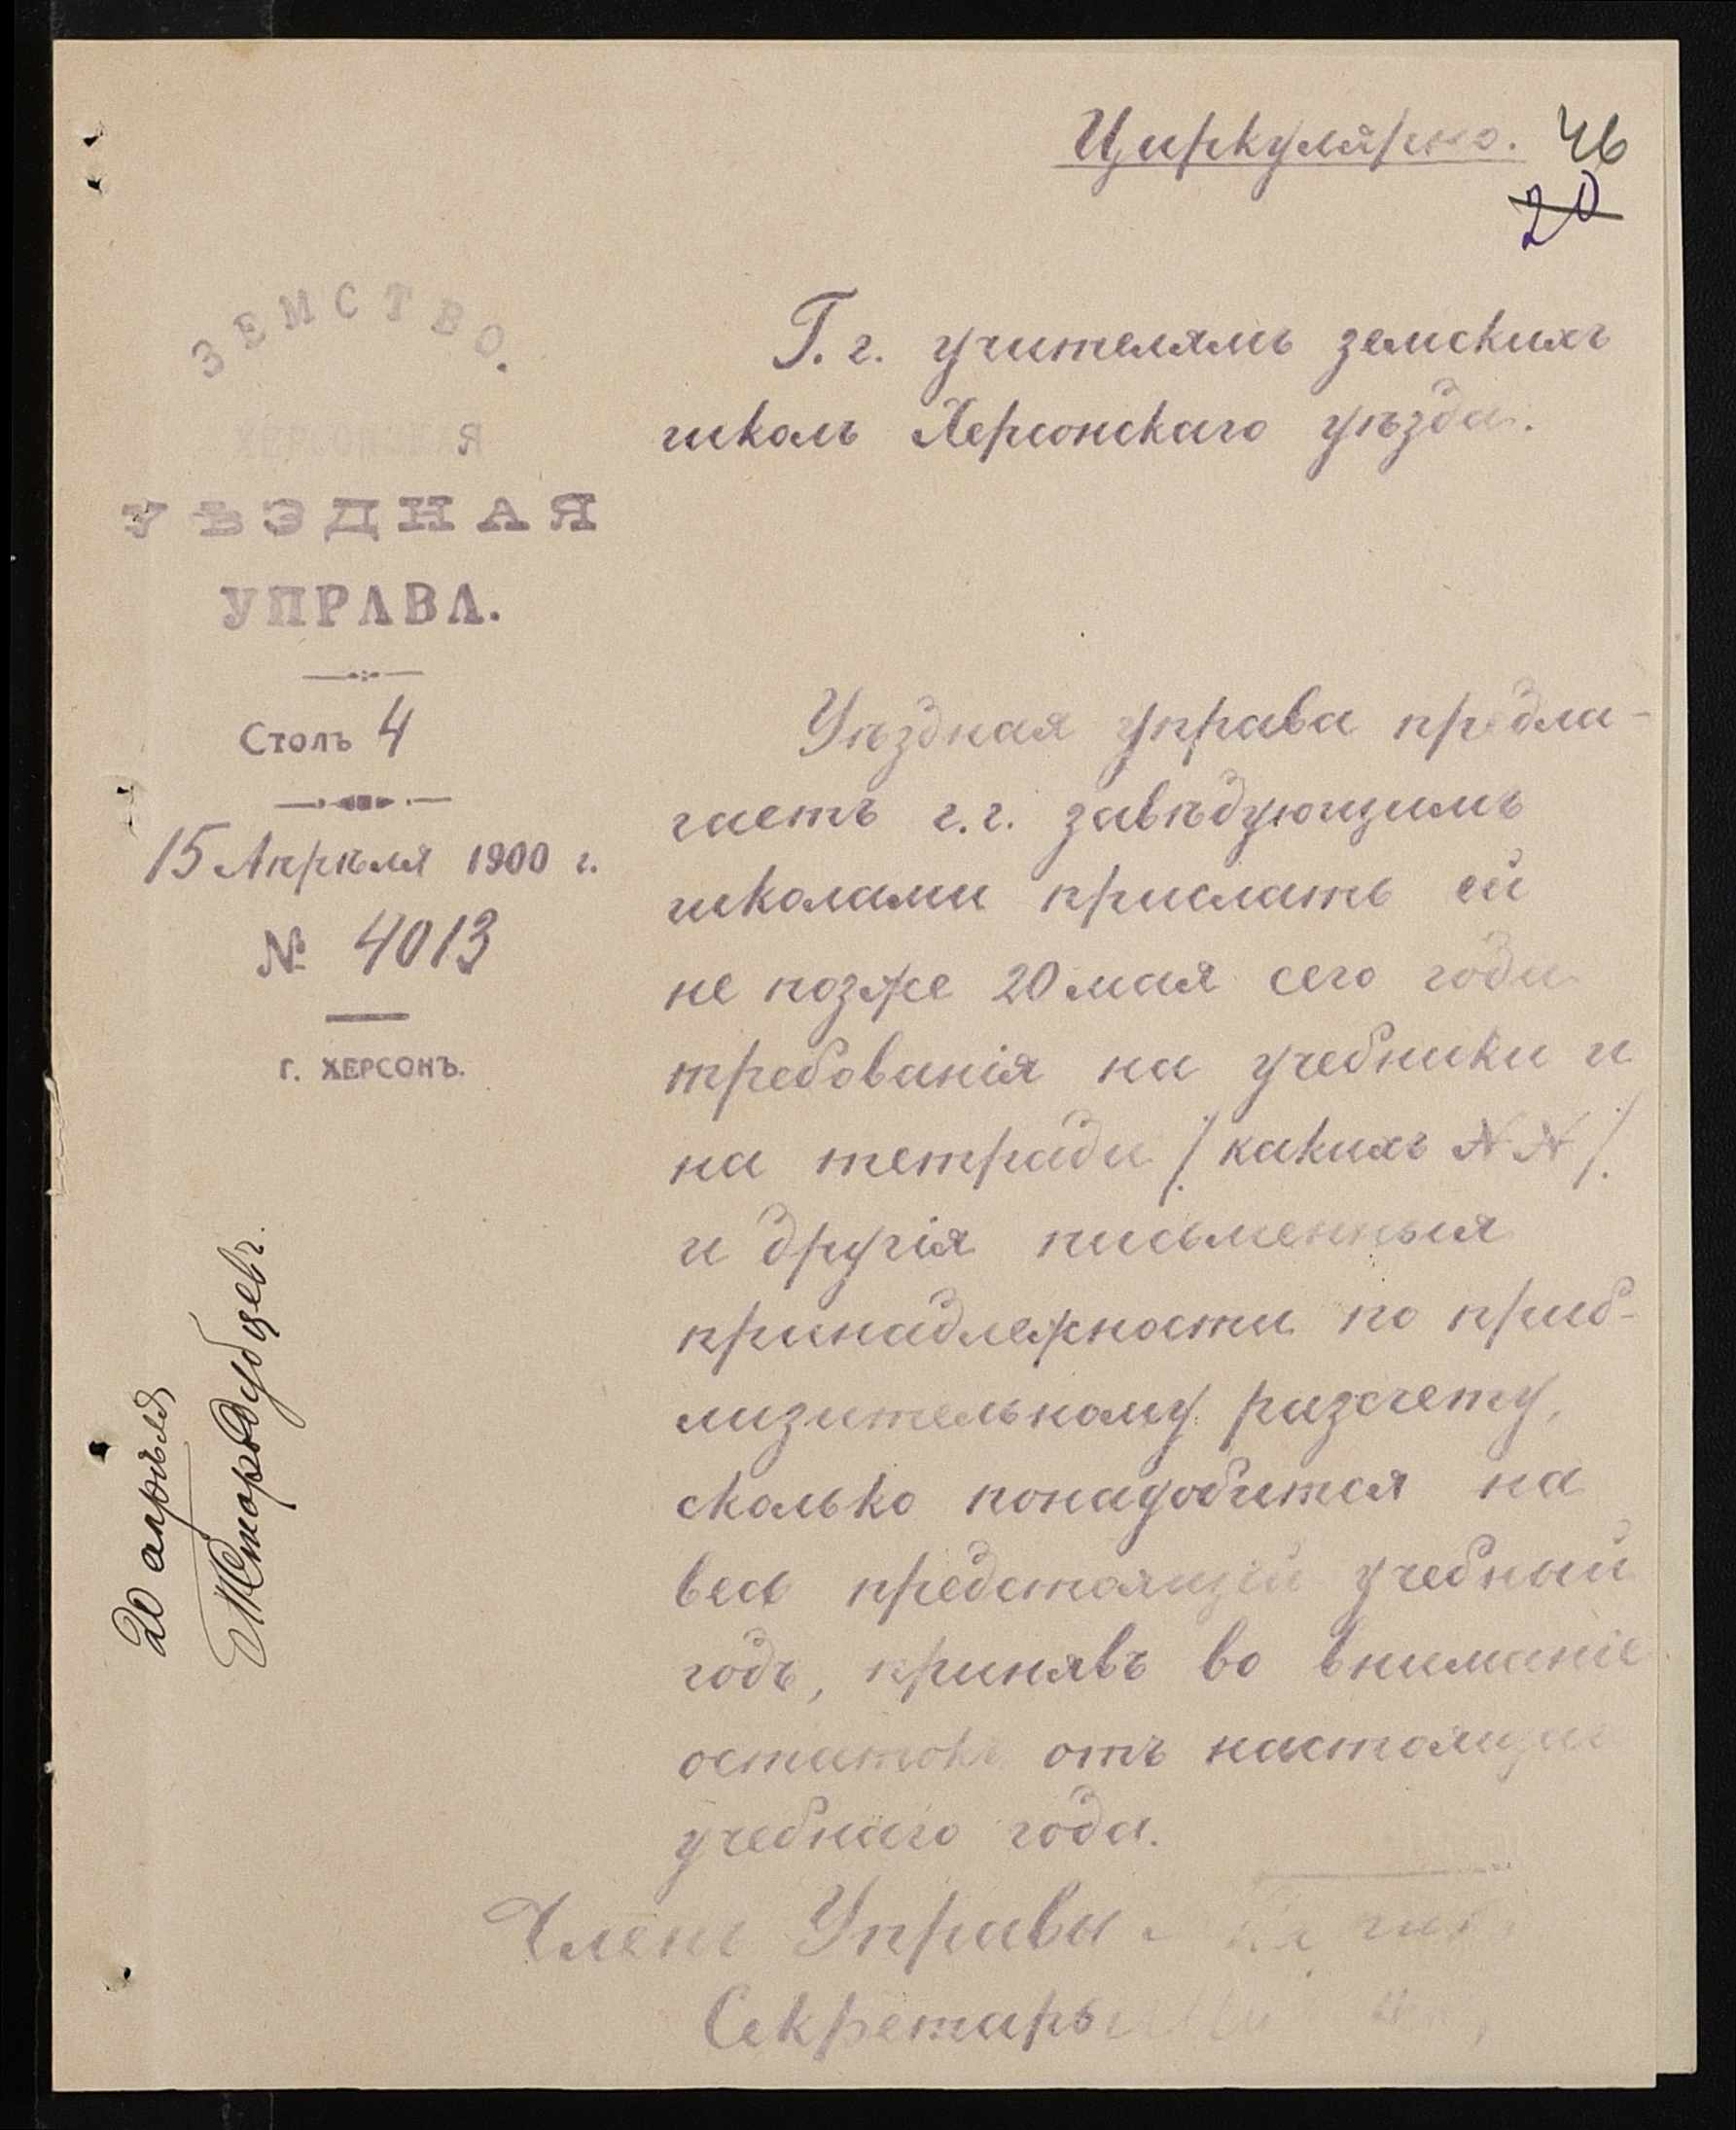 Циркулярно. 46
20
ЗЕМСТВО.
ХЕРСОНСКАЯ
УѢЗДНАЯ
УПРАВА.
Столъ 4
15 Апрѣля 1900 г.
№ 4013
Г. ХЕРСОНЪ.
Г. г. учителямъ земскихъ
школъ Херсонскаго уѣзда.
Уѣздная управа предла-
гаетъ г. г. завѣдующимъ
школами прислать ей
не позже 20 мая сего года
требованія на учебники и
на тетради /: какихъ № № :/
и другія письменныя
принадлежности по приб-
лизительному разсчету,
сколько понадобится на
весь предстоящій учебный
годъ, принявъ во вниманіе
остатокъ отъ настоящаго
учебнаго года.
Членъ Управы
Секретарь
20 апрѣля